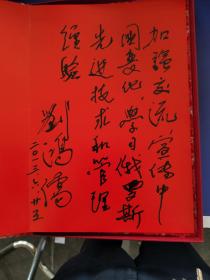 加强交流,宣传中
国变化,学习俄罗斯
先进技术和管理
经验
刘鸿儒
二〇一三.六.廿五